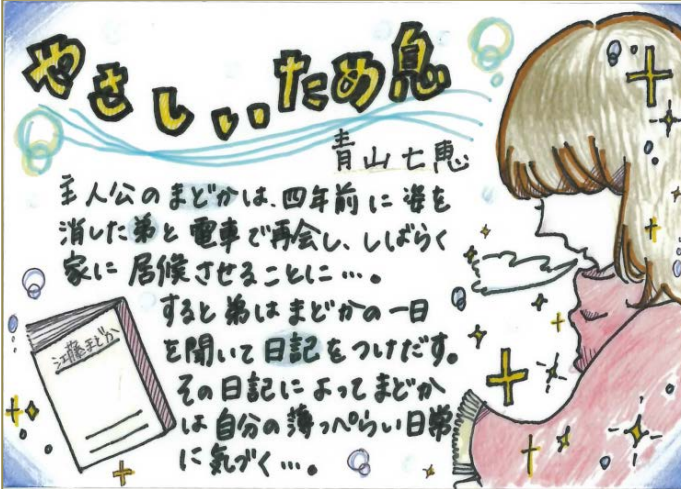 やさしいため息
青山七恵
主人公のまどかは、四年前に姿を
消した弟と電車で再会し、しばらく
家に居候させることに…。
すると弟はまどかの一日
を聞いて日記をつけだす。
その日記によってまどか
は自分の薄っぺらい日常
に気づく…。
江藤まどか